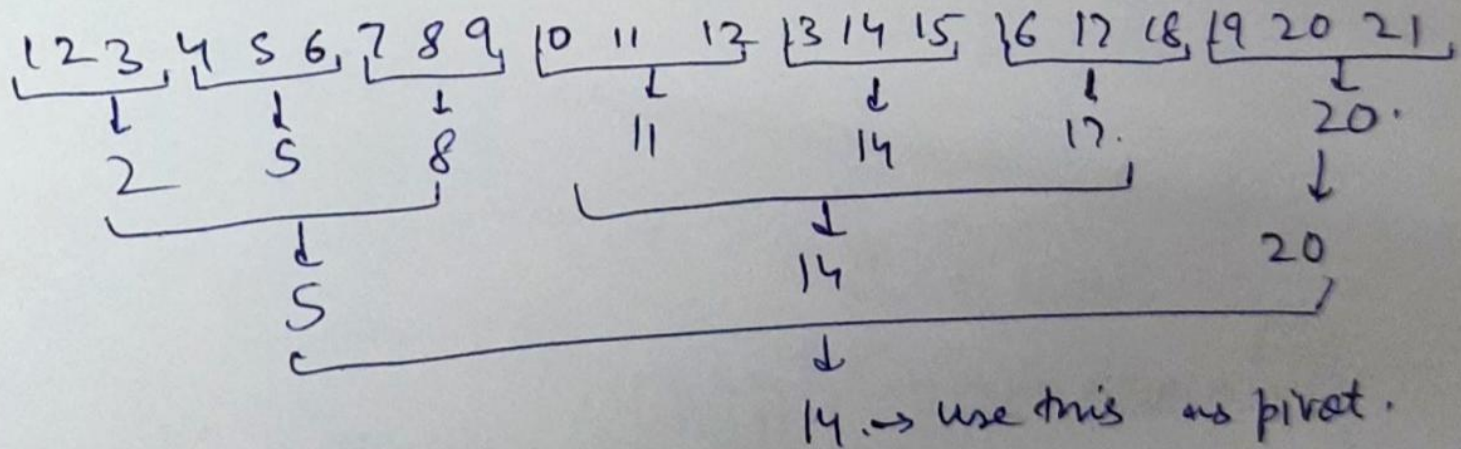 1 2 3 4 5 6 7 8 9 10 11 12 13 14 15 16 17 18 19 20 21
2 5 8 11 14 17. 20.
5 14 20
14. → use this as pivot.